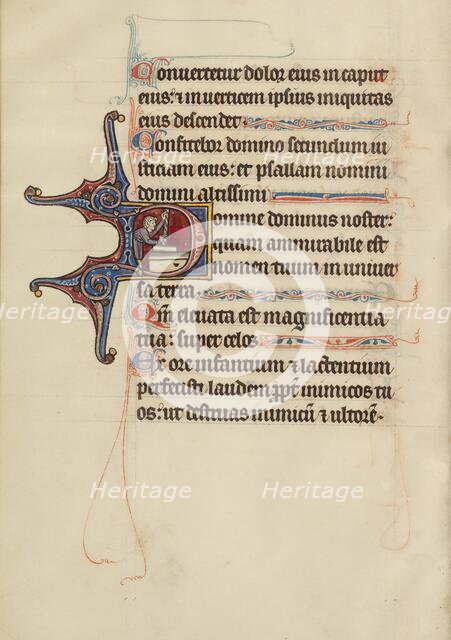 Conuertetur dolor eius in caput
eius: ⁊ in uerticem ipsius iniquitas
eius descendet
Confitebor domino secundum iu
sticiam eius: et psallam nomini
domini altissimi
Domine dominus noster:
quam ammirabile est
nomen tuum in uniuer
sa terra.
Qm̄ eleuata est magnificentia
tua: super celos
Ex ore infantium ⁊ lactentium
perfecisti laudem ꝓpt̄ inimicos tu
os: ut destruas inimicū ⁊ ultorē.
Heritage Heritage Heritage
Heritage Heritage Heritage
Heritage Heritage